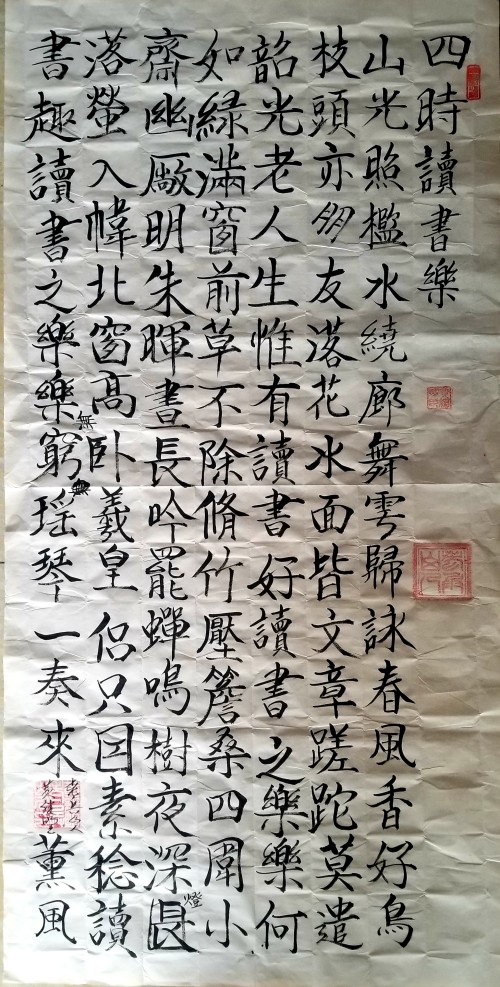 四時讀書樂
山光照檻水繞廊舞雩歸詠春風香好鳥
枝頭亦多友落花水面皆文章蹉跎莫遣
韶光老人生惟有讀書好讀書之樂樂何
如綠滿窗前草不除脩竹壓簷桑四圍小
齋幽厰明朱暉晝長吟罷蟬鳴樹夜深長燈
落螢入幃北窗高卧羲皇侶只因素稔讀
書趣讀書之樂樂無窮瑶琴一奏來薰風